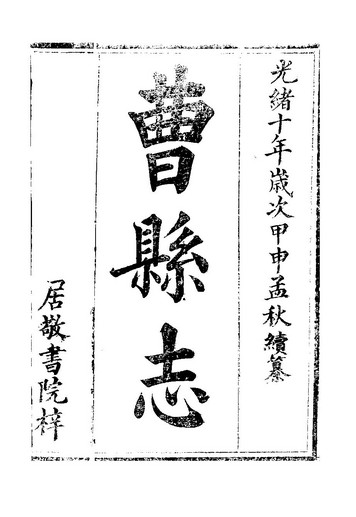 光緒十年歲次甲申孟秋續纂
曹縣志
居敬書院梓